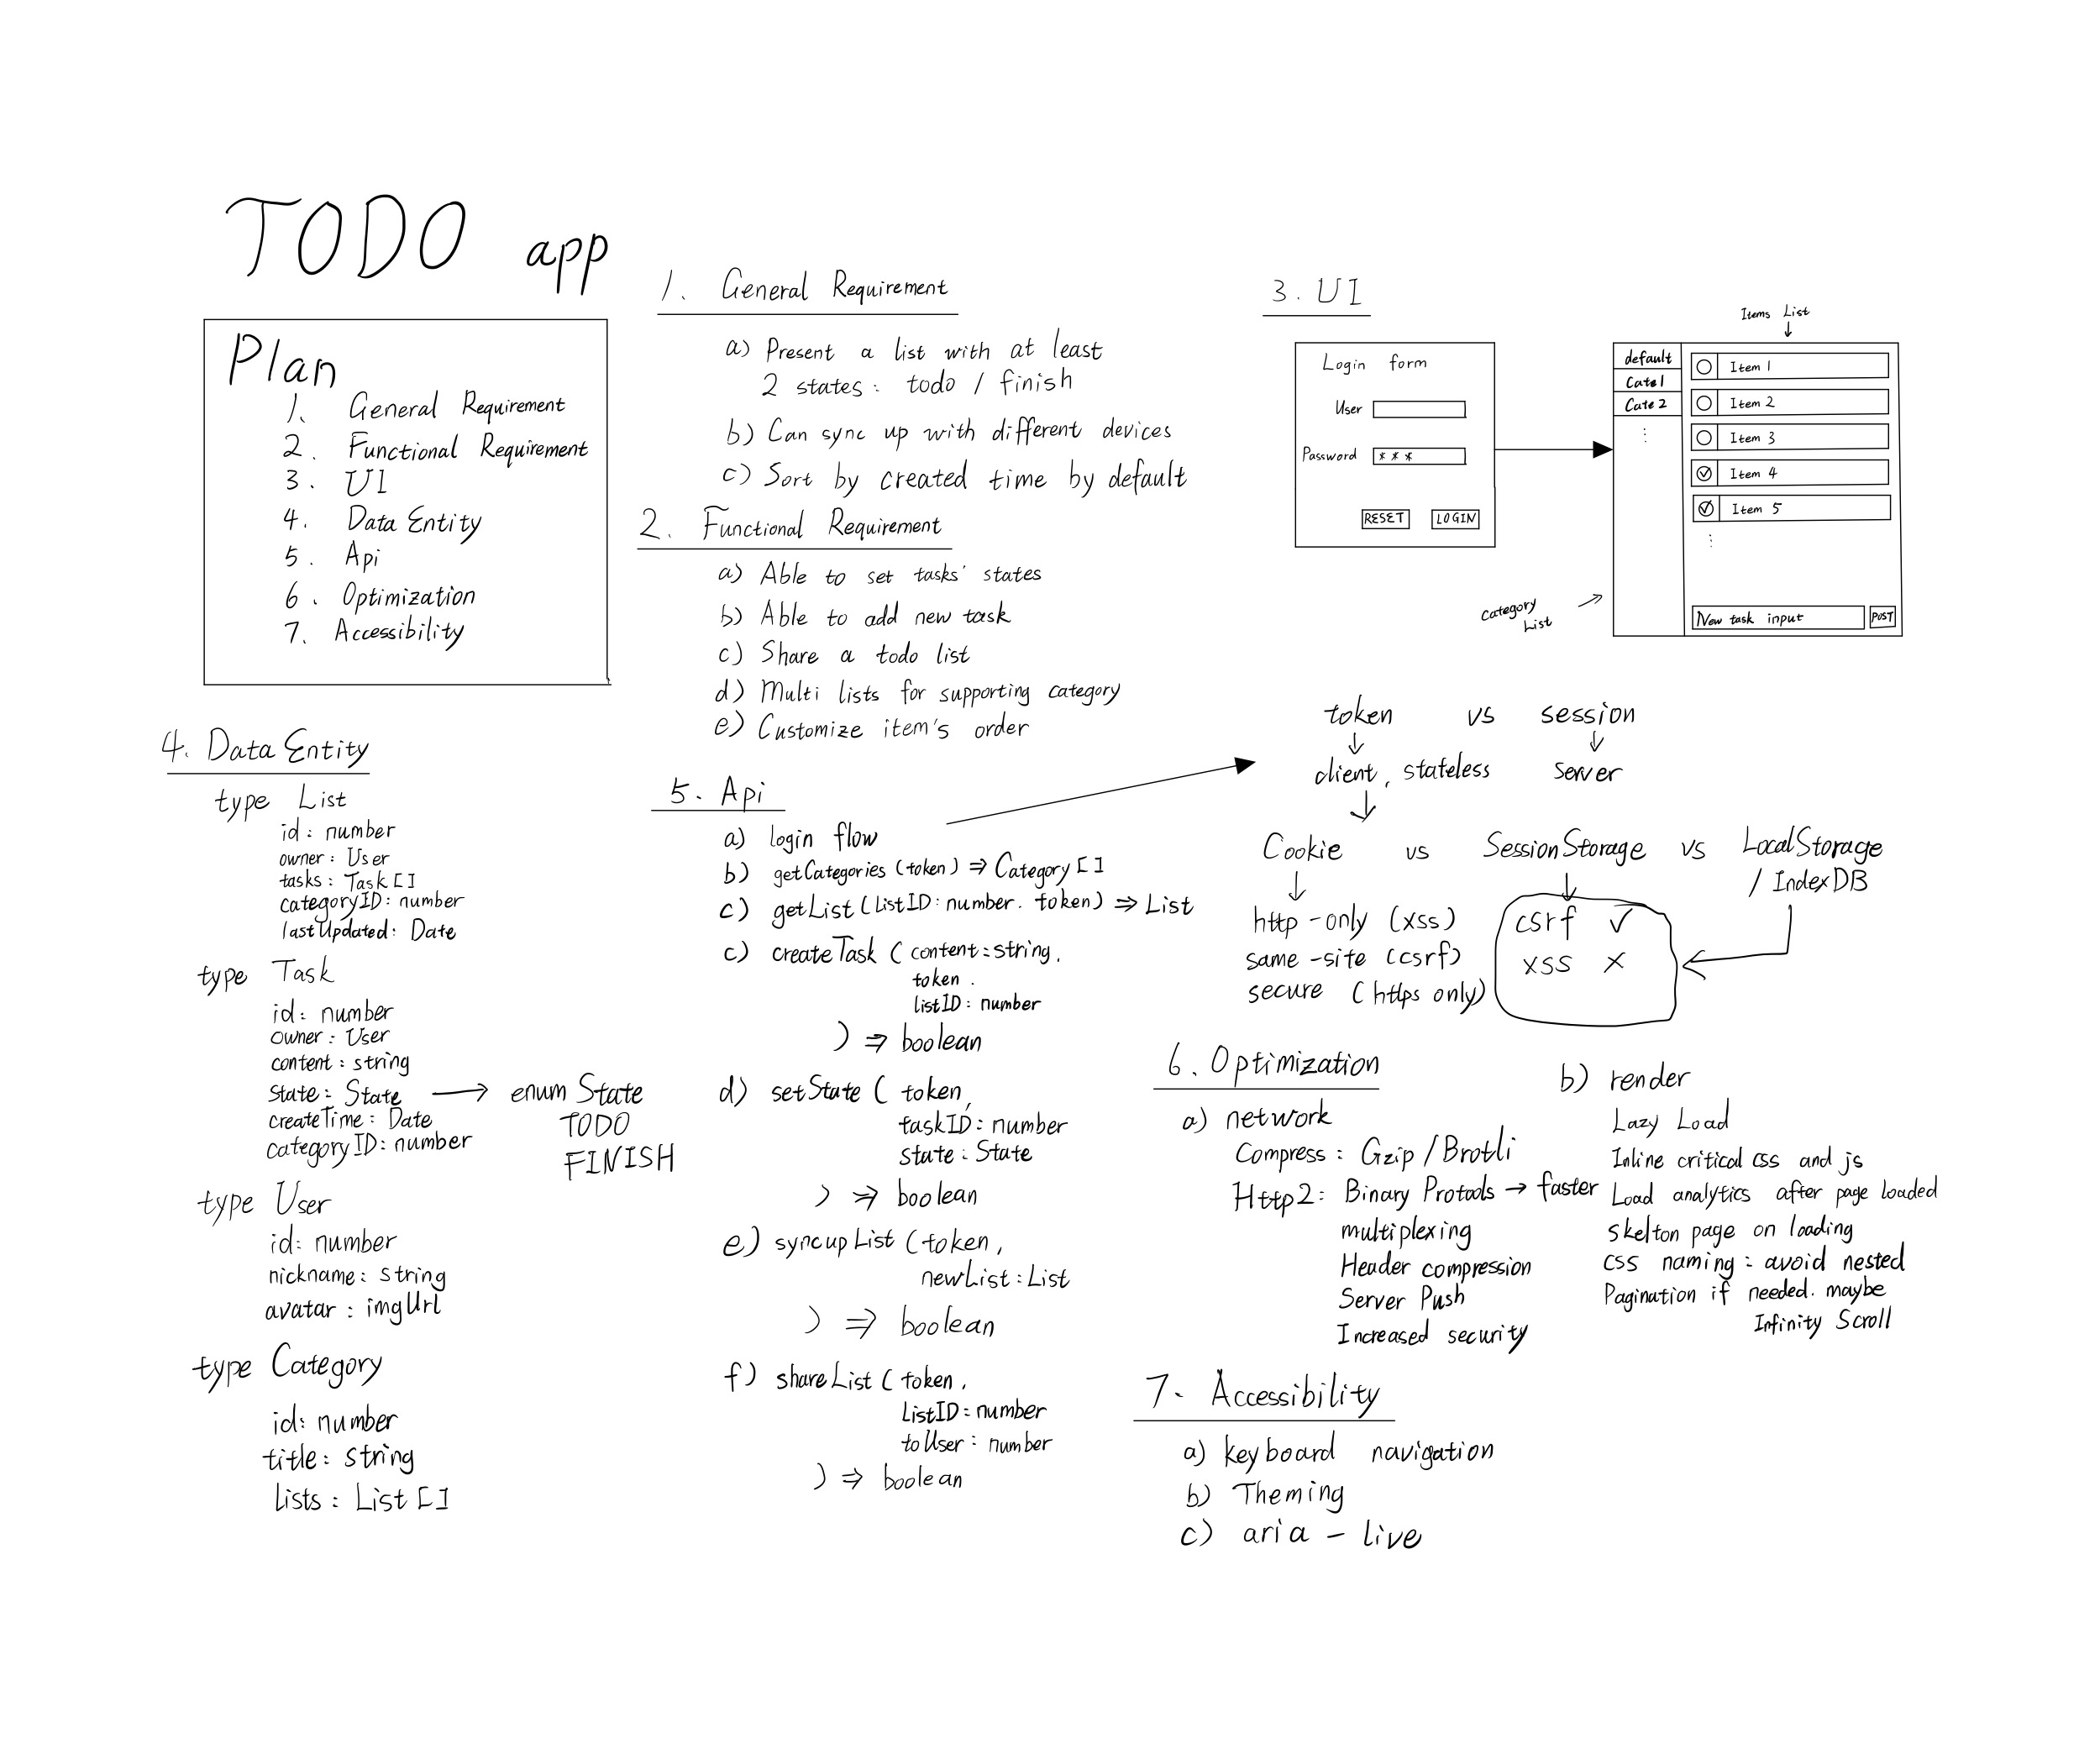 TODO app
Plan
1. General Requirement
2. Functional Requirement
3. UI
4. Data Entity
5. Api
6. Optimization
7. Accessibility
1. General Requirement
a) Present a list with at least
2 states: todo / finish
b) Can sync up with different devices
c) Sort by created time by default
2. Functional Requirement
a) Able to set tasks' states
b) Able to add new task
c) Share a todo list
d) Multi lists for supporting category
e) Customize item's order
3. UI
Login form
User
Password * * *
RESET LOGIN
Items List
default
Cate1
Cate 2
⋮
Item 1
Item 2
Item 3
Item 4
Item 5
⋮
New task input POST
category
List
4. Data Entity
type List
id: number
owner: User
tasks: Task[]
categoryID: number
lastUpdated: Date
type Task
id: number
owner: User
content: string
state: State → enum State
TODO
FINISH
createTime: Date
categoryID: number
type User
id: number
nickname: string
avatar: imgUrl
type Category
id: number
title: string
lists: List[]
5. Api
a) login flow
b) getCategories (token) ⇒ Category[]
c) getList (listID: number. token) ⇒ List
c) createTask ( content: string,
token.
listID: number
) ⇒ boolean
d) setState ( token,
taskID: number
state: State
) ⇒ boolean
e) syncupList (token,
newList: List
) ⇒ boolean
f) shareList ( token,
ListID: number
toUser: number
) ⇒ boolean
token vs session
↓ ↓
client, stateless server
↓
Cookie vs SessionStorage vs LocalStorage
/ IndexDB
↓ ↓
http-only (xss)
same-site (csrf)
secure (https only)
csrf ✓
xss ×
6. Optimization
a) network
Compress: Gzip / Brotli
Http2: Binary Protools → faster
multiplexing
Header compression
Server Push
Increased security
b) render
Lazy Load
Inline critical css and js
Load analytics after page loaded
Skelton page on loading
css naming: avoid nested
Pagination if needed. maybe
Infinity Scroll
7. Accessibility
a) keyboard navigation
b) Theming
c) aria - live